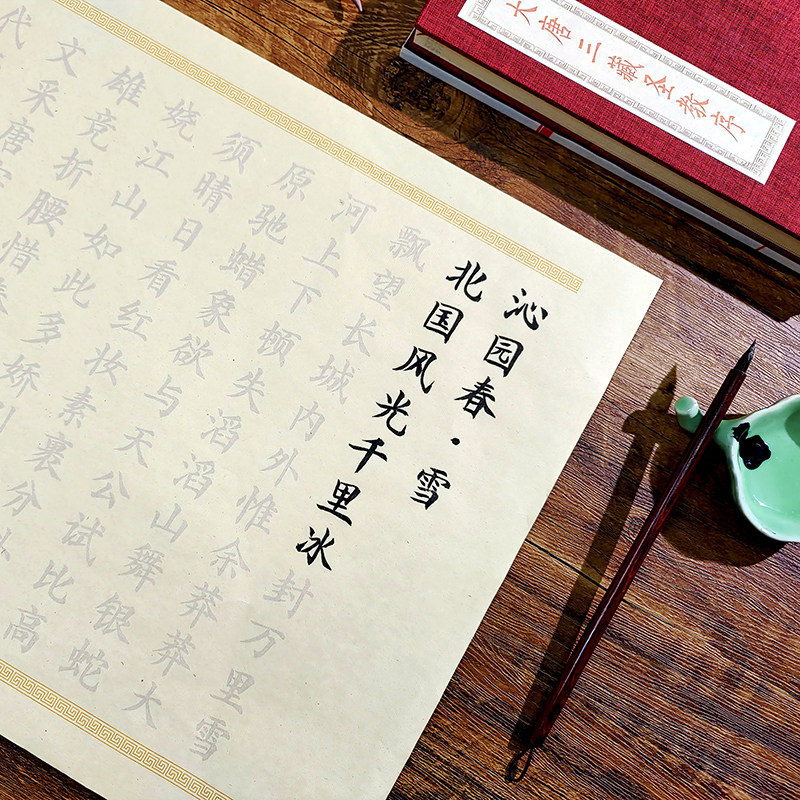 沁园春·雪
北国风光千里冰封万里雪
飘望长城内外惟余莽莽大
河上下顿失滔滔山舞银蛇
原驰蜡象欲与天公试比高
须晴日看红妆素裹分
娆江山如此多娇
雄竞折腰惜
文采唐
代
大唐三藏圣教序